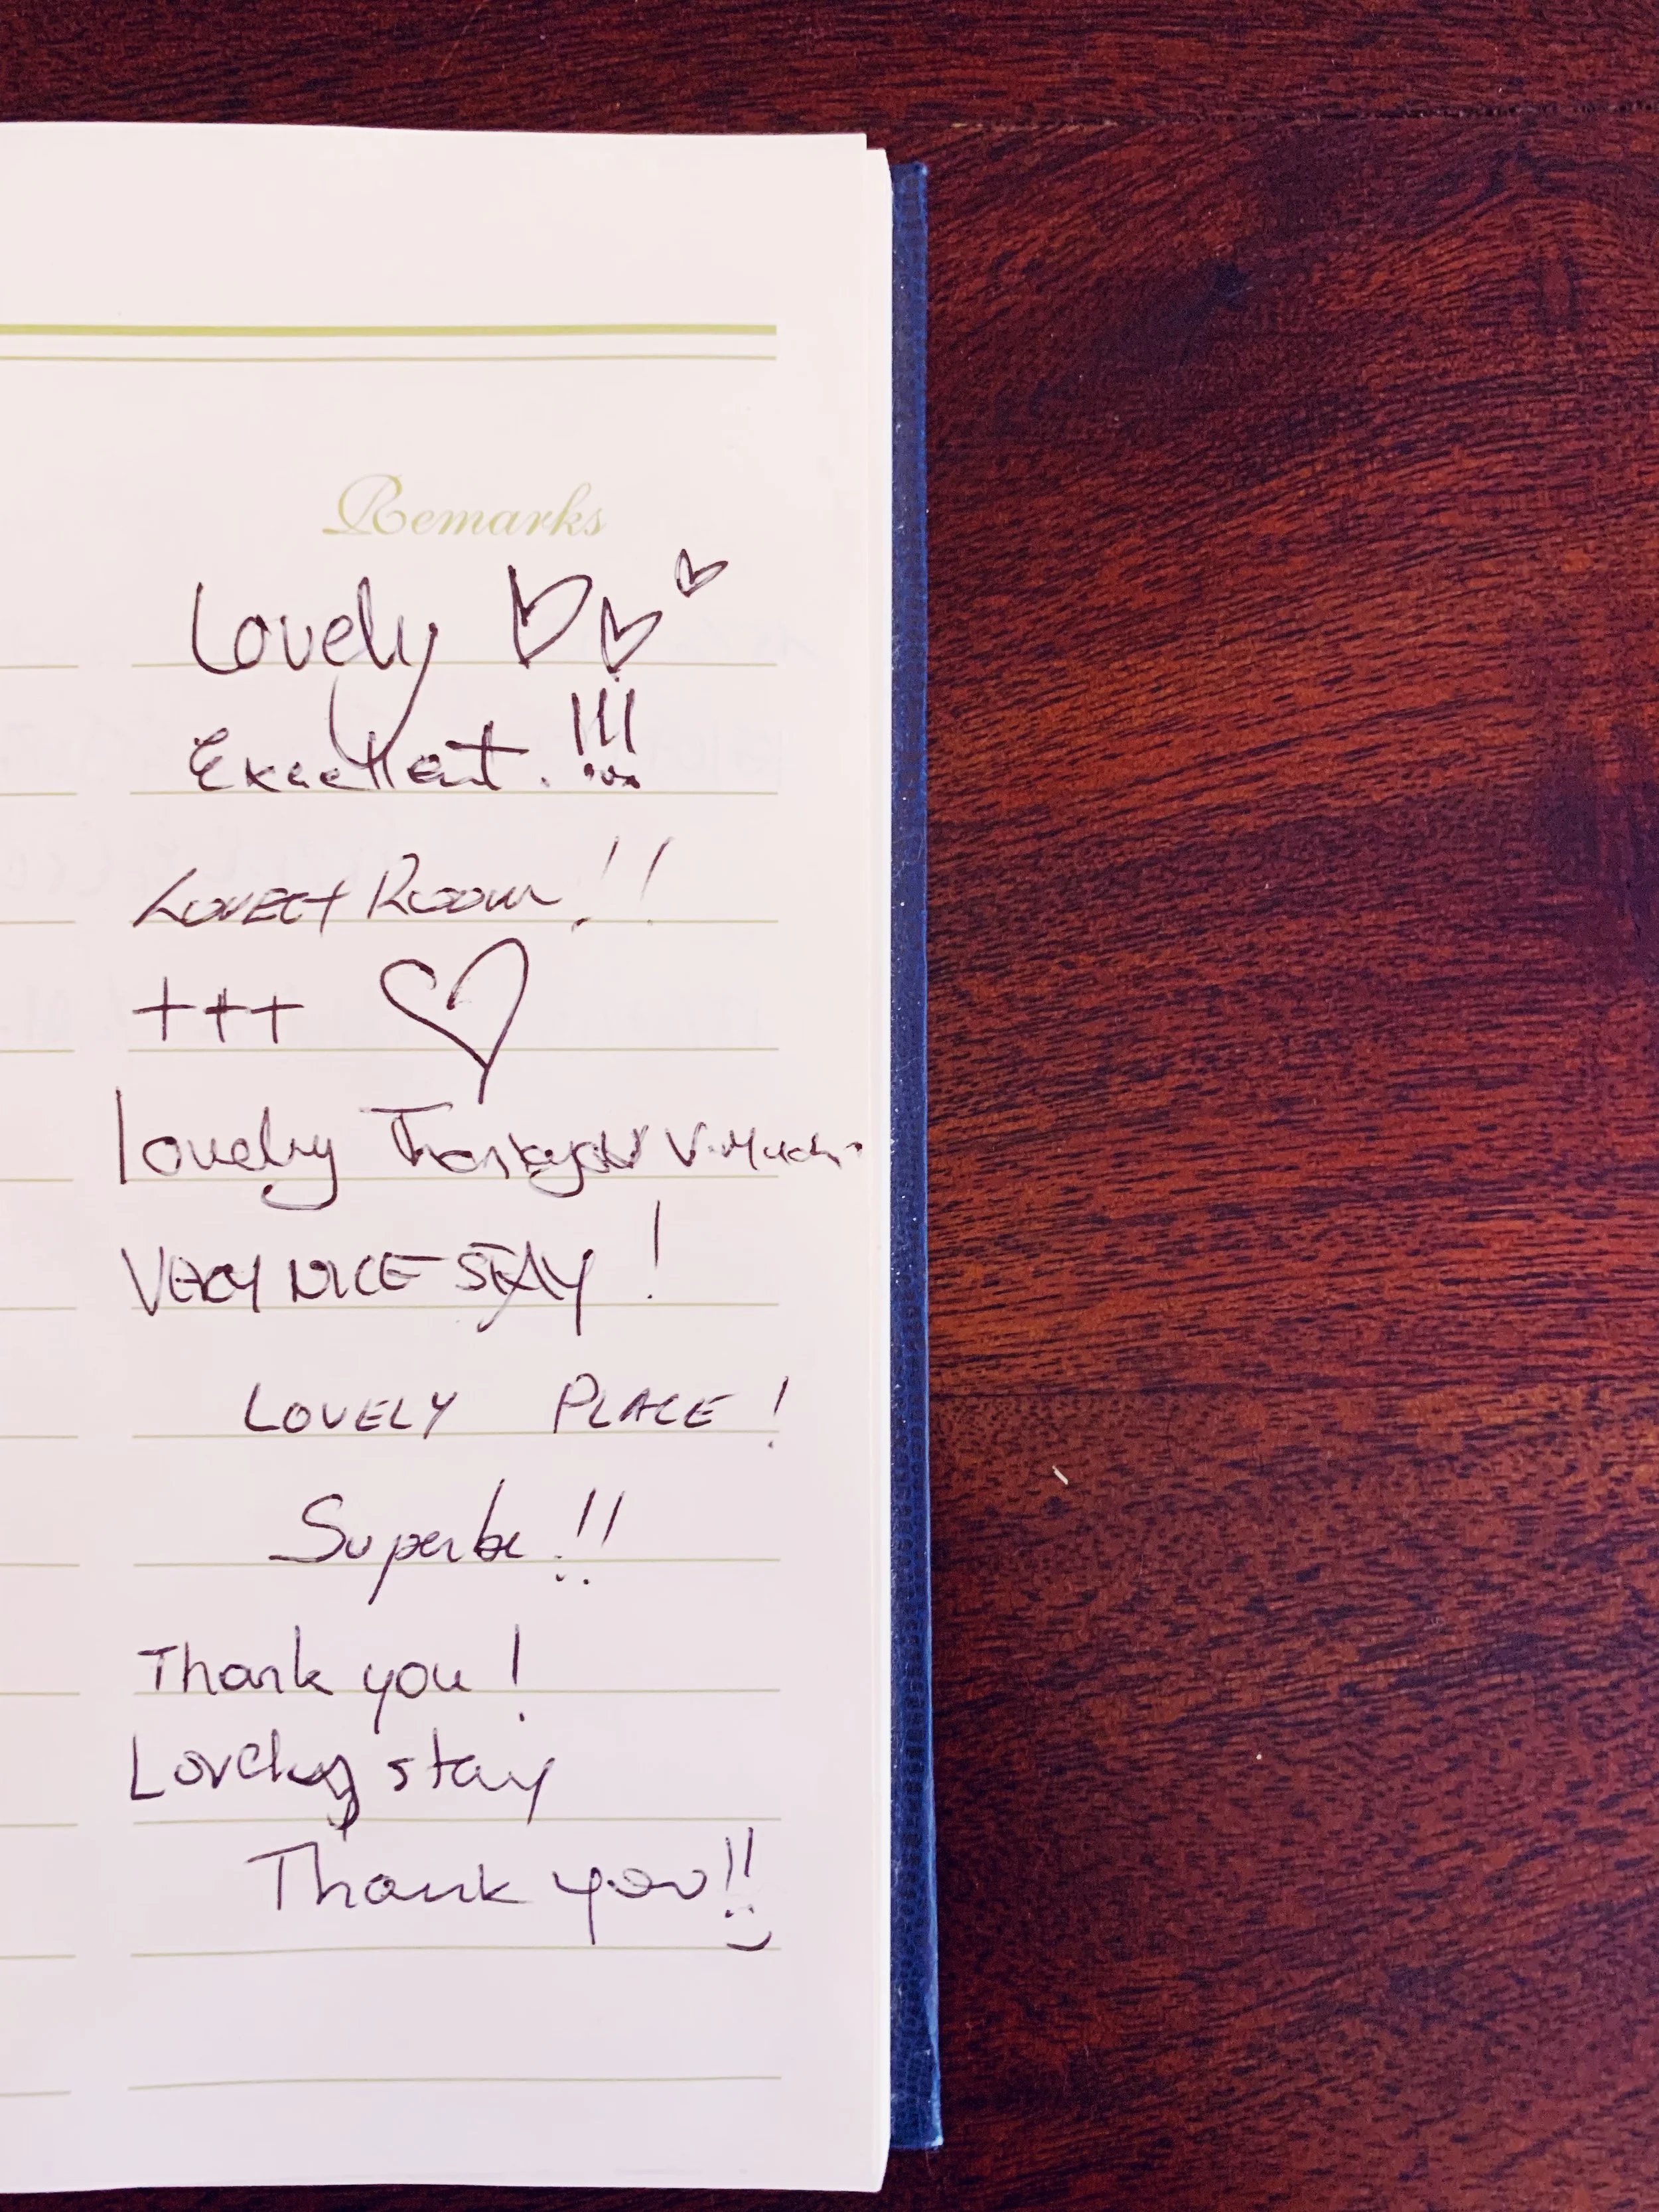 Remarks
Lovely
Excellent. !!!
LOVELY ROOM!!
+++
Lovely Thankyou V. Much.
VERY NICE STAY !
LOVELY PLACE !
Superbe !!
Thank you !
Lovely stay
Thank you!!